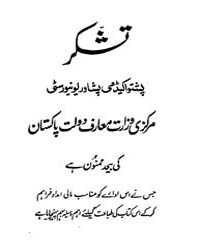 تشکر
پشتو اکیڈمی، پشاور یونیورسٹی
مرکزی وزارت معارف دولت پاکستان
کی بیحد ممنون ہے
جس نے اس ادارے کو مناسب مالی امداد فراہم
کرکے اس کتاب کی طباعت کیلئے اہم وسیلہ بہم پہنچایا ہے